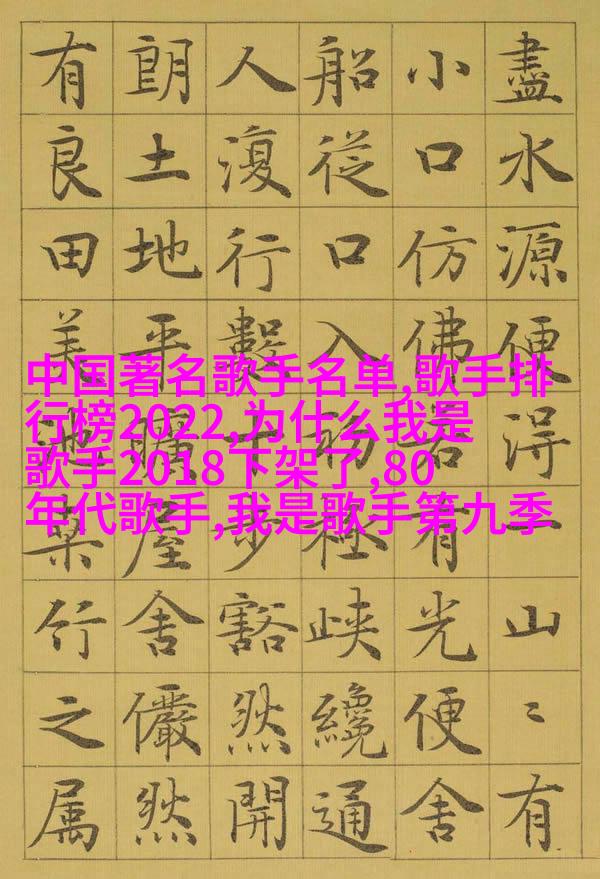 盡水源便得一山〻有
小口仿佛若有光便舍
船從口入初極峡纔通
人復行數十步豁然開
朗土地平曠屋舍儼然
有良田美池桑竹之属
中国著名歌手名单,歌手排
行榜2022,为什么我是
歌手2018下架了,80
年代歌手,我是歌手第九季